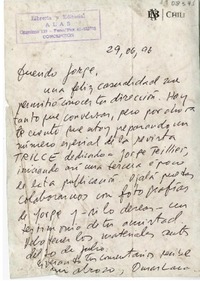 Librería y Editorial
A L A S
CONCEPCION
BN CHILE
29, 06, 96
Querido Jorge,
una feliz casualidad me
permitió conocer tu dirección. Hay
tanto que conversar, pero por ahora
te cuento que estoy preparando un
número especial de la revista
TRILCE dedicado a Jorge Teillier,
iniciando así una tercera época
de esta publicación. Ojalá puedas
colaborarnos con fotografías
de Jorge y si lo deseas un
testimonio de tu amistad
los materiales antes
del 10 de julio.
Esperando tus comentarios recibe
un abrazo, Omar Lara